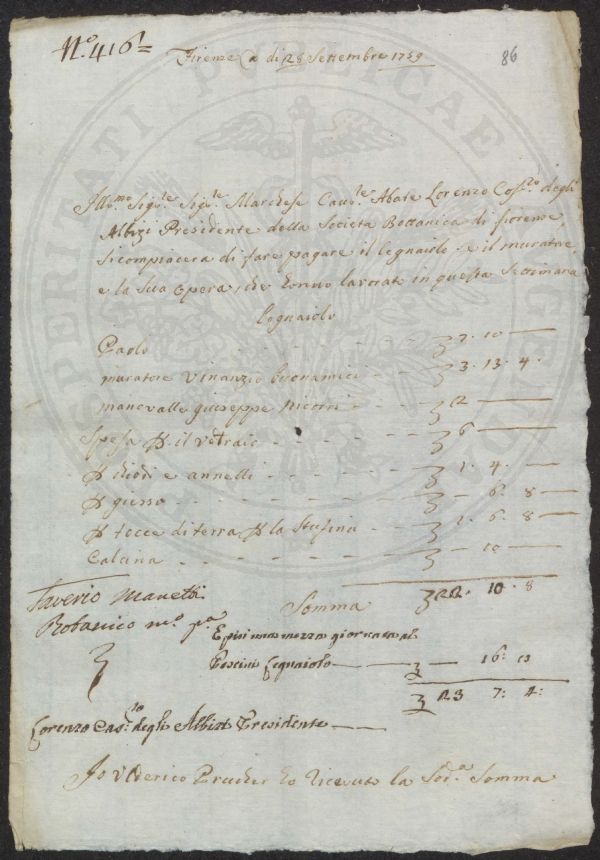 N.º 416=
Firenze a di 28 Settembre 1759
86
Ill.mo Sig.re Sig.re Marchese Cau.re Abate Lorenzo Cas.to degli
Albizi Presidente della Societa Bottanica di fiorenze,
si compiacera di fare pagare il legnaiolo e il muratore
e la sua opera, che honno lavorato in questa Settimana
legnaiolo
Paolo 7. 10 —
muratore Vinanzio buonamici 3. 13. 4.
manovalle giuseppe 2 —
Spesa p. il vetraio 6 —
p chiodi e annelli 1. 4. —
p giesso — 6. 8 —
p tocce di terra p la Stufina 1. 6. 8 —
Calcina — 10 —
Somma 22. 10. 8
Saverio Manetti
Botanico m.º p.ª
E piu una mezza giornata al
legnaiolo — 16:
23 7: 4:
Lorenzo Cas.to degli Albizi Presidente
Io Vlderico Prucher ho riceuto la Sod.a Somma
PROSPERITATI PUBLICAE AUGENDAE